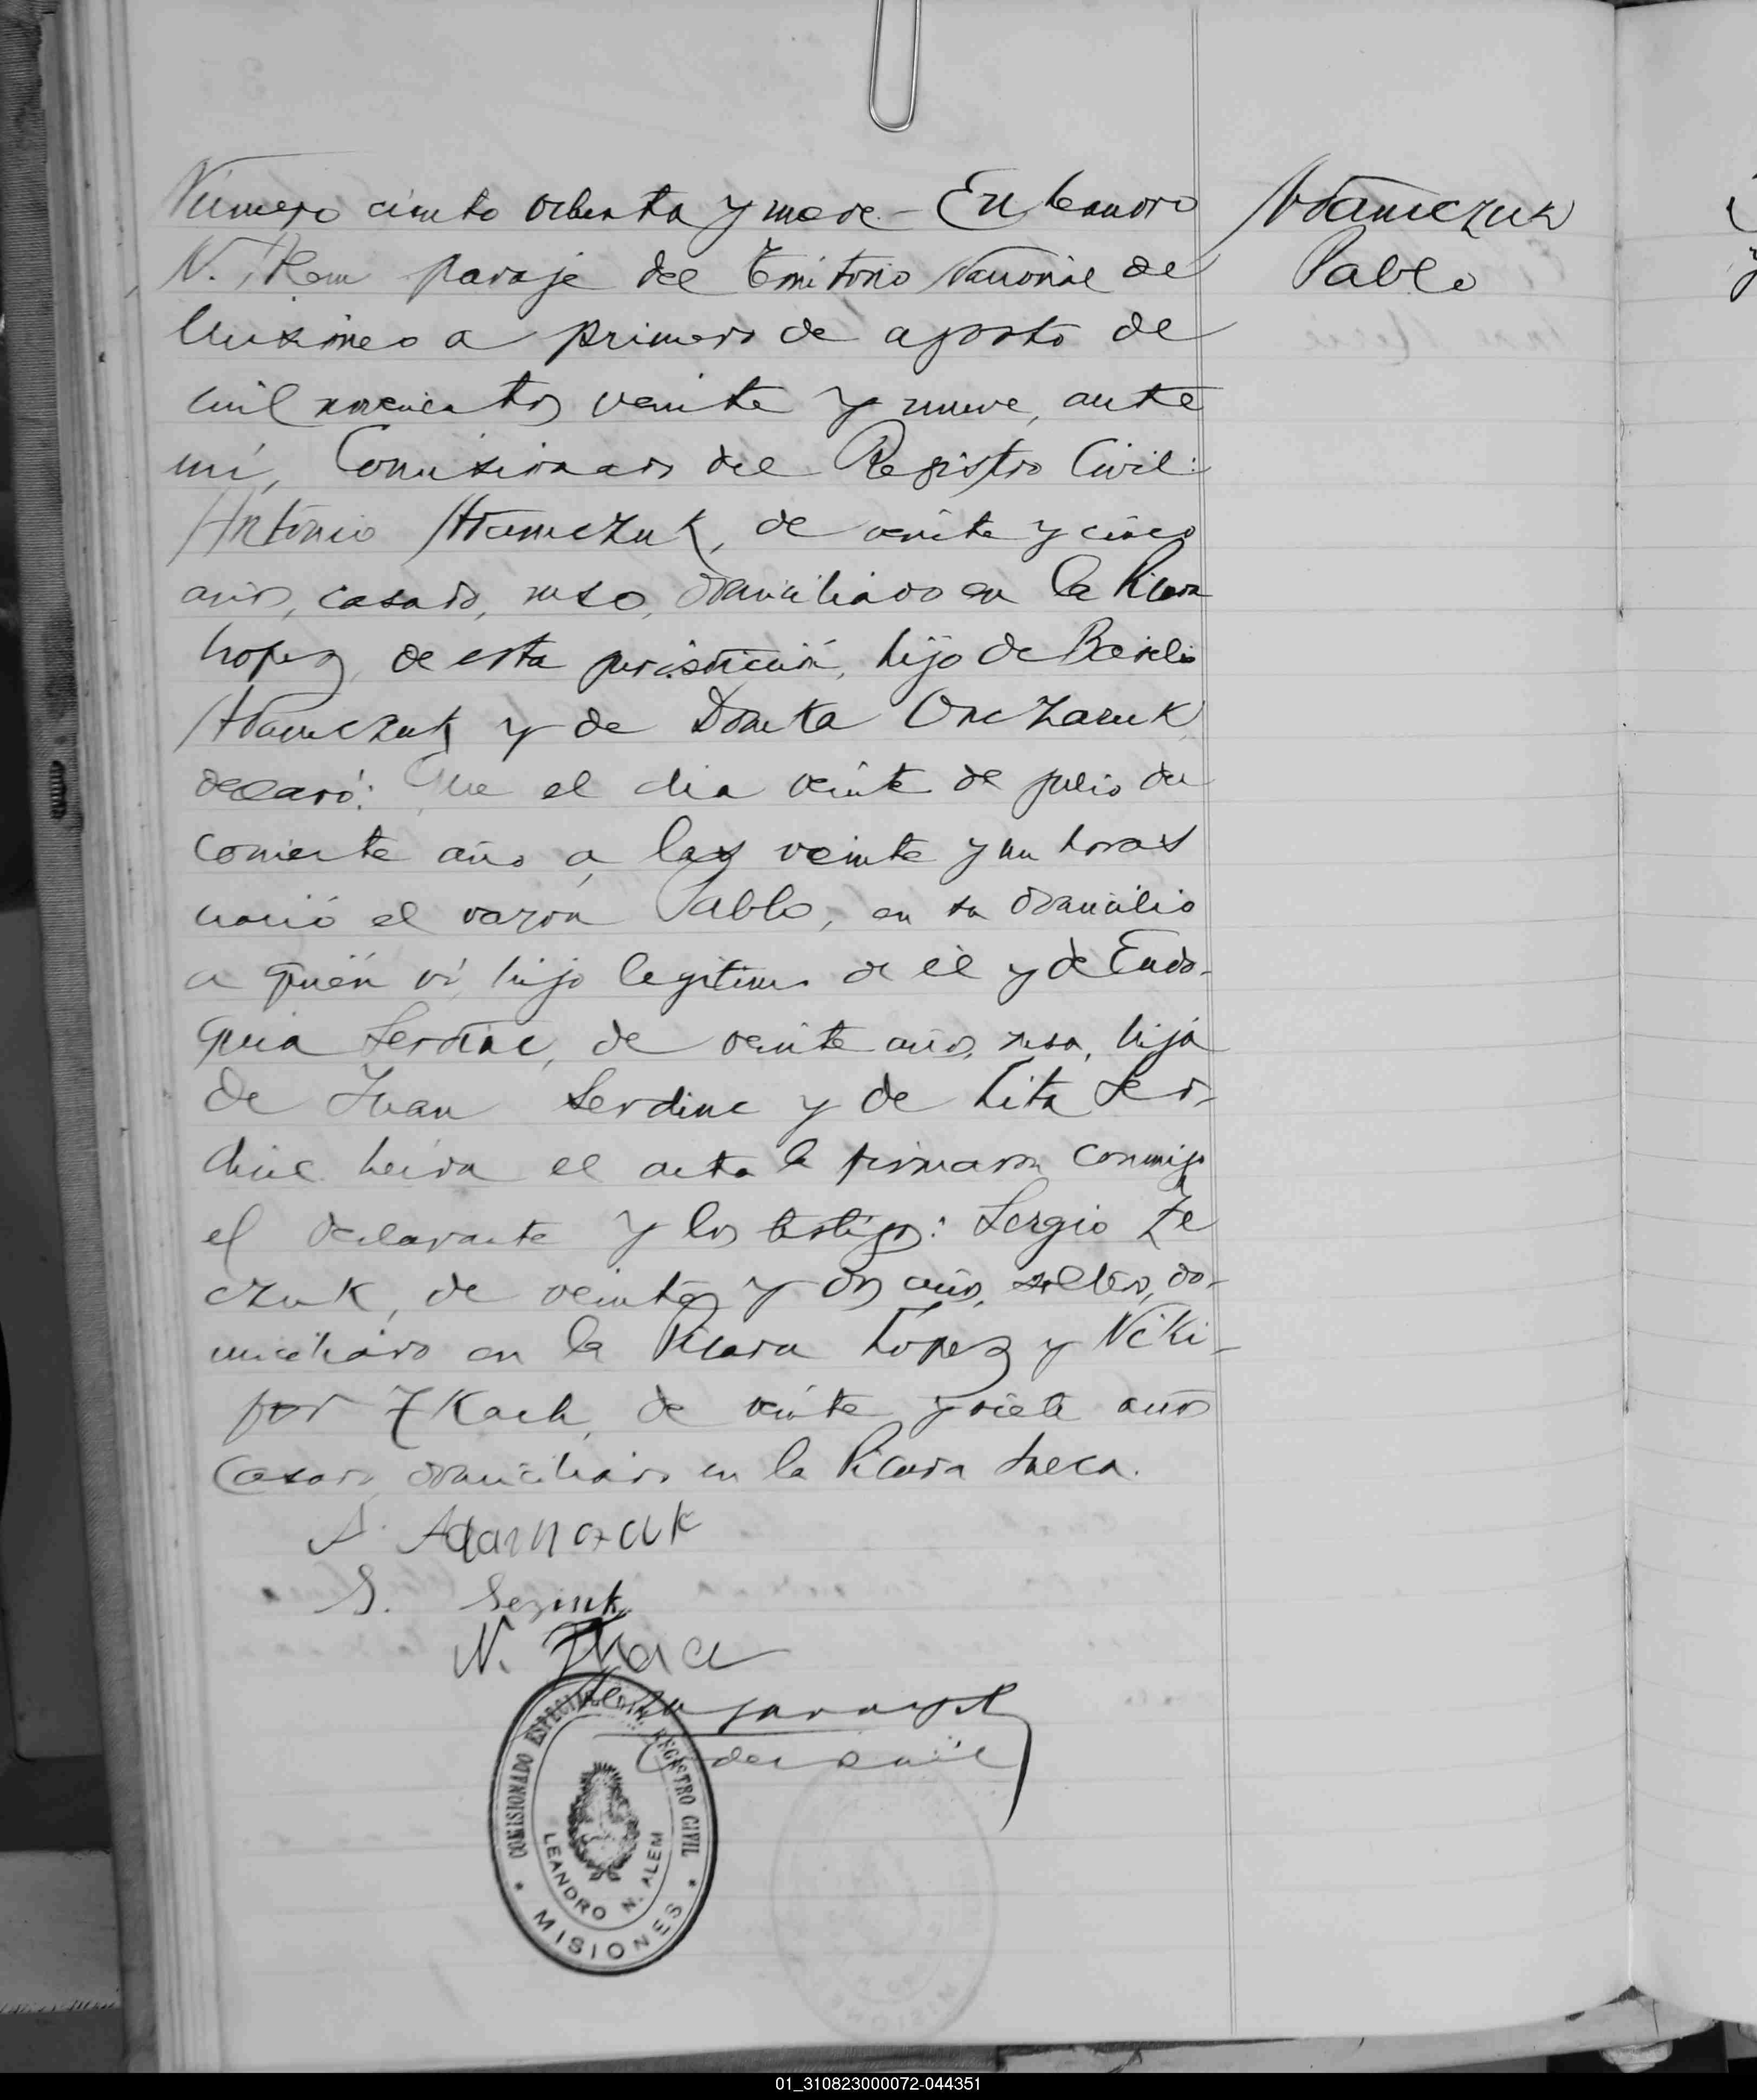 Número ciento ochenta y nueve - En Leandro
N. Alem paraje del Territorio Nacional de
Misiones a primero de agosto de
mil novecientos veinte y nueve, ante
mí, Comisionado del Registro Civil:
Antonio Adamczuk, de veinte y cinco
años, casado, ruso, domiciliado en la Picada
Lopez, de esta jurisdicción, hijo de Basilio
Adamczuk y de Domka Onczaruk,
declaró: Que el dia veinte de julio del
corriente año a las veinte y un horas
nació el varón Pablo, en su domicilio
a quién ví, hijo legitimo de él y de Eudo-
quia Serdiuc, de veinte años, rusa, hija
de Juan Serdiuc y de Lita Ser-
diuc. Leída el acta la firmaron conmigo
el declarante y los testigos: Sergio Ze
czuk, de veinte y dos años, soltero, do-
miciliado en la Picada Lopez y Niki-
for Tkach, de veinte y siete años
casado, domiciliado en la Picada Sueca.
A. Adamczuk
S.
N.
COMISIONADO ESPECIAL DEL REGISTRO CIVIL
LEANDRO N. ALEM
* MISIONES *
Adamczuk
Pablo
01_310823000072-044351